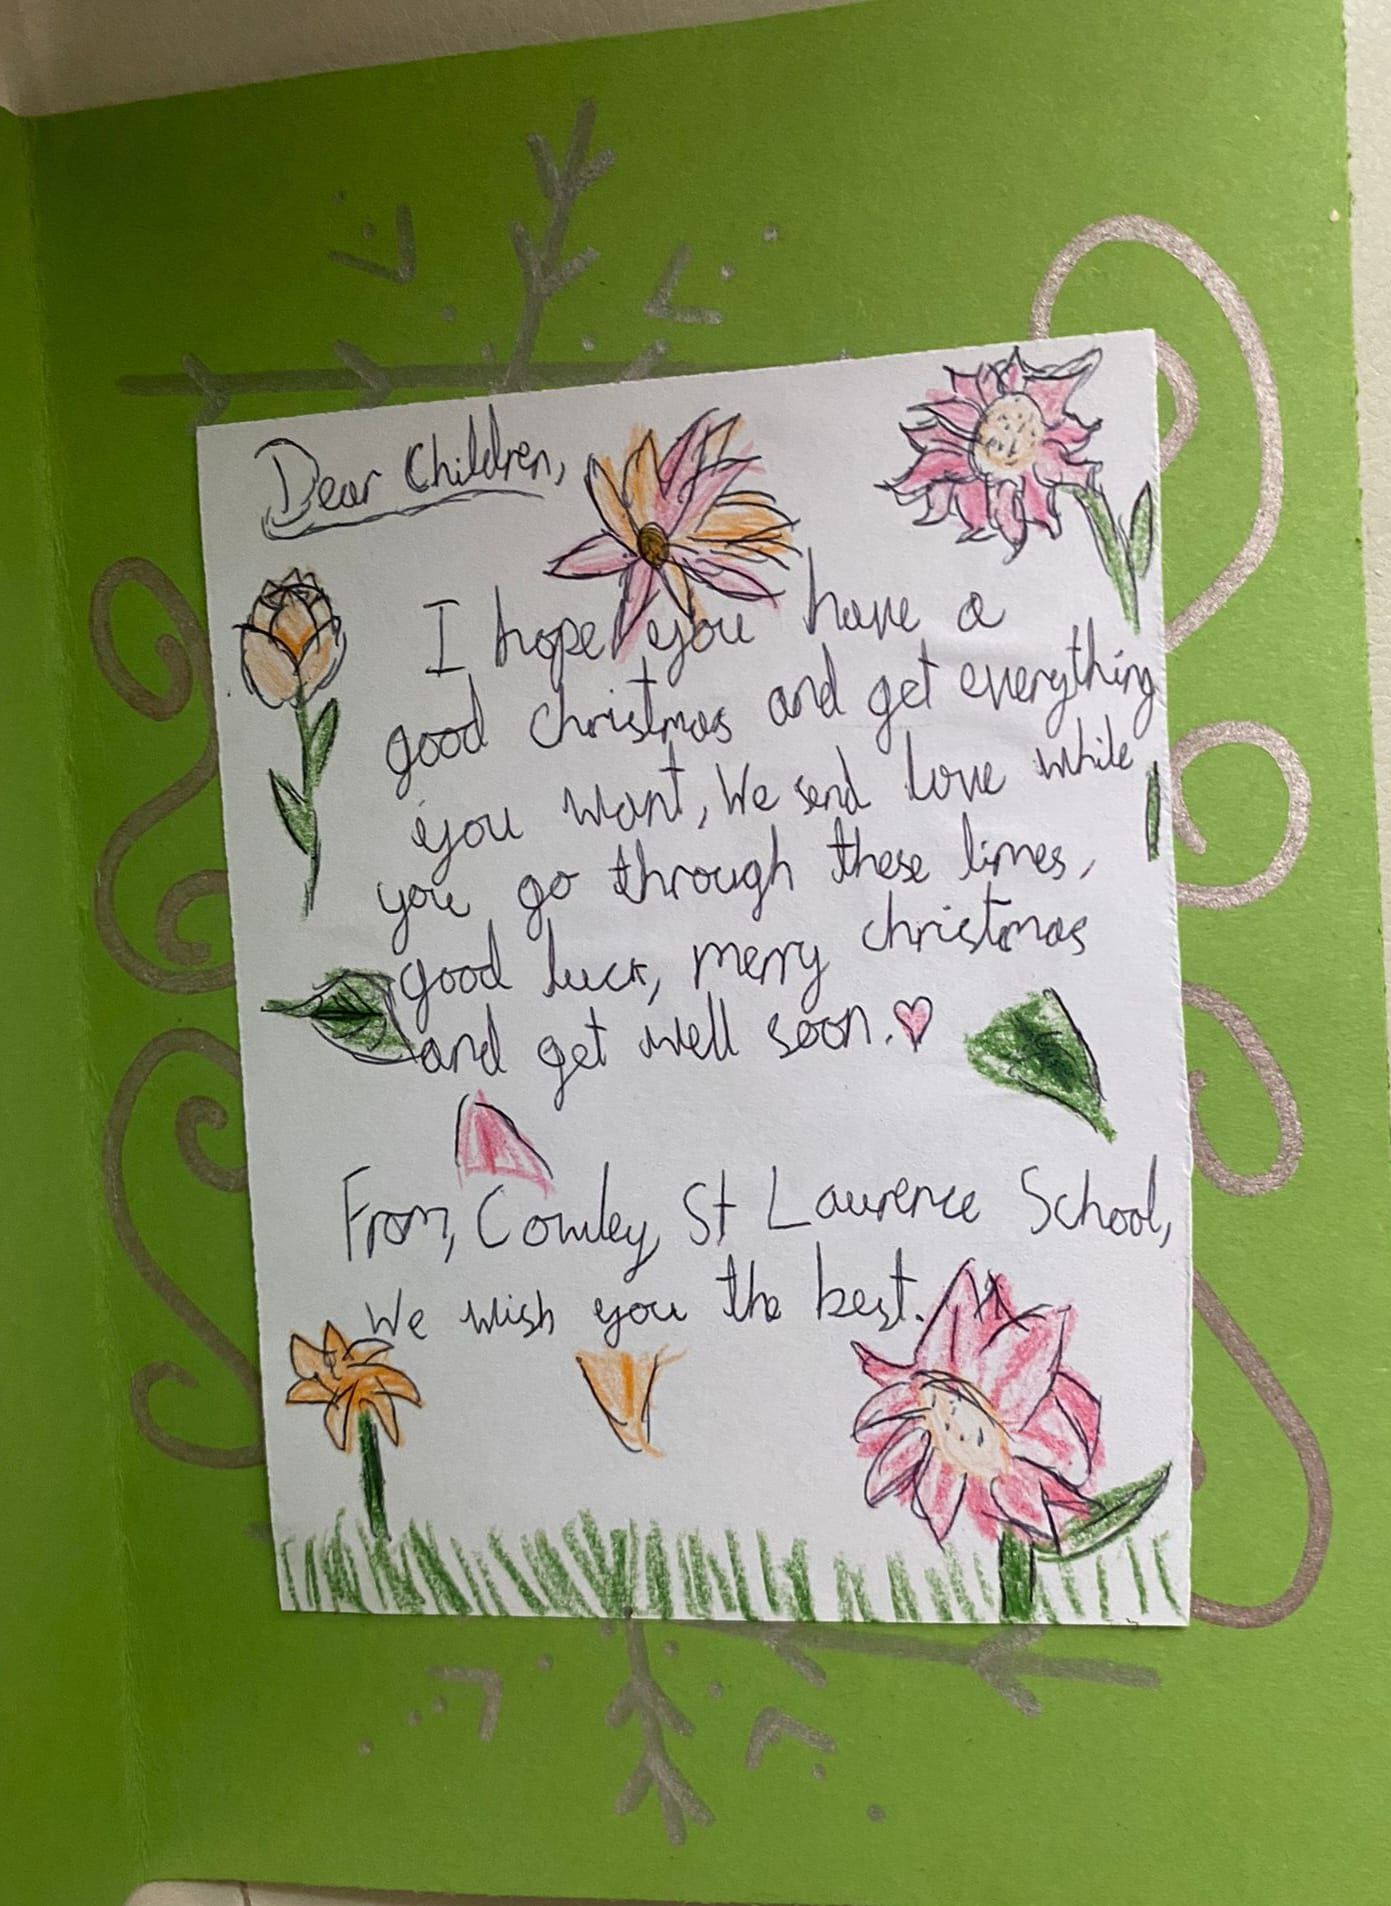 Dear Children,
I hope you have a
good christmas and get everything
you want, We send love while
you go through these times,
good luck, merry christmas
and get well soon.
From, Cowley, St Laurence School,
We wish you the best.